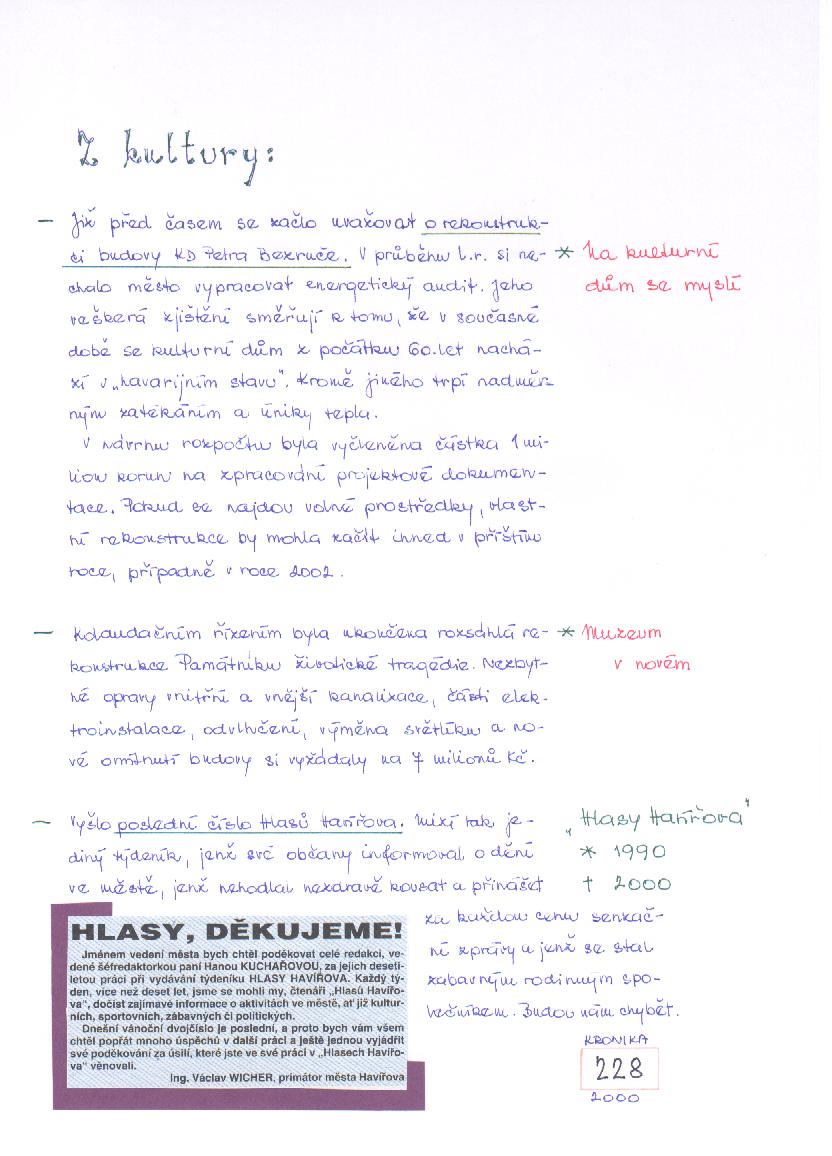 Z kultury:
– Již před časem se začlo uvažovat o rekonstruk-
ci budovy KD Petra Bezruče. V průběhu t.r. si ne-
chalo město vypracovat energetický audit. Jeho
veškerá zjištění směřují k tomu, že v současné
době se kulturní dům z počátku 60.let nachá-
zí v „havarijním stavu". Kromě jiného trpí nadměr-
ným zatékáním a úniky tepla.
* Na kulturní
dům se myslí
V návrhu rozpočtu byla vyčleněna částka 1 mi-
lion korun na zpracování projektové dokumen-
tace. Pokud se najdou volné prostředky, vlast-
ní rekonstrukce by mohla začít ihned v příštím
roce, případně v roce 2002.
– Kolaudačním řízením byla ukončena rozsáhlá re-
konstrukce Památníku životické tragédie. Nezbyt-
né opravy vnitřní a vnější kanalizace, části elek-
troinstalace, odvlhčení, výměna světlíku a no-
vé omítnutí budovy si vyžádaly na 7 milionů Kč.
* Muzeum
v novém
– Vyšlo poslední číslo Hlasů Havířova. Mizí tak je-
diný týdeník, jenž své občany informoval o dění
ve městě, jenž nehodlal nezdravě kousat a přinášet
za každou cenu senzač-
ní zprávy a jenž se stal
zábavným rodinným spo-
lečníkem. Budou nám chybět.
„Hlasy Havířova"
* 1990
† 2000
HLASY, DĚKUJEME!
Jménem vedení města bych chtěl poděkovat celé redakci, ve-
dené šéfredaktorkou paní Hanou KUCHAŘOVOU, za jejich deseti-
letou práci při vydávání týdeníku HLASY HAVÍŘOVA. Každý tý-
den, více než deset let, jsme se mohli my, čtenáři „Hlasů Havířo-
va", dočíst zajímavé informace o aktivitách ve městě, ať již kultur-
ních, sportovních, zábavných či politických.
Dnešní vánoční dvojčíslo je poslední, a proto bych vám všem
chtěl popřát mnoho úspěchů v další práci a ještě jednou vyjádřit
své poděkování za úsilí, které jste ve své práci v „Hlasech Havířo-
va" věnovali.
Ing. Václav WICHER, primátor města Havířova
KRONIKA
228
2000